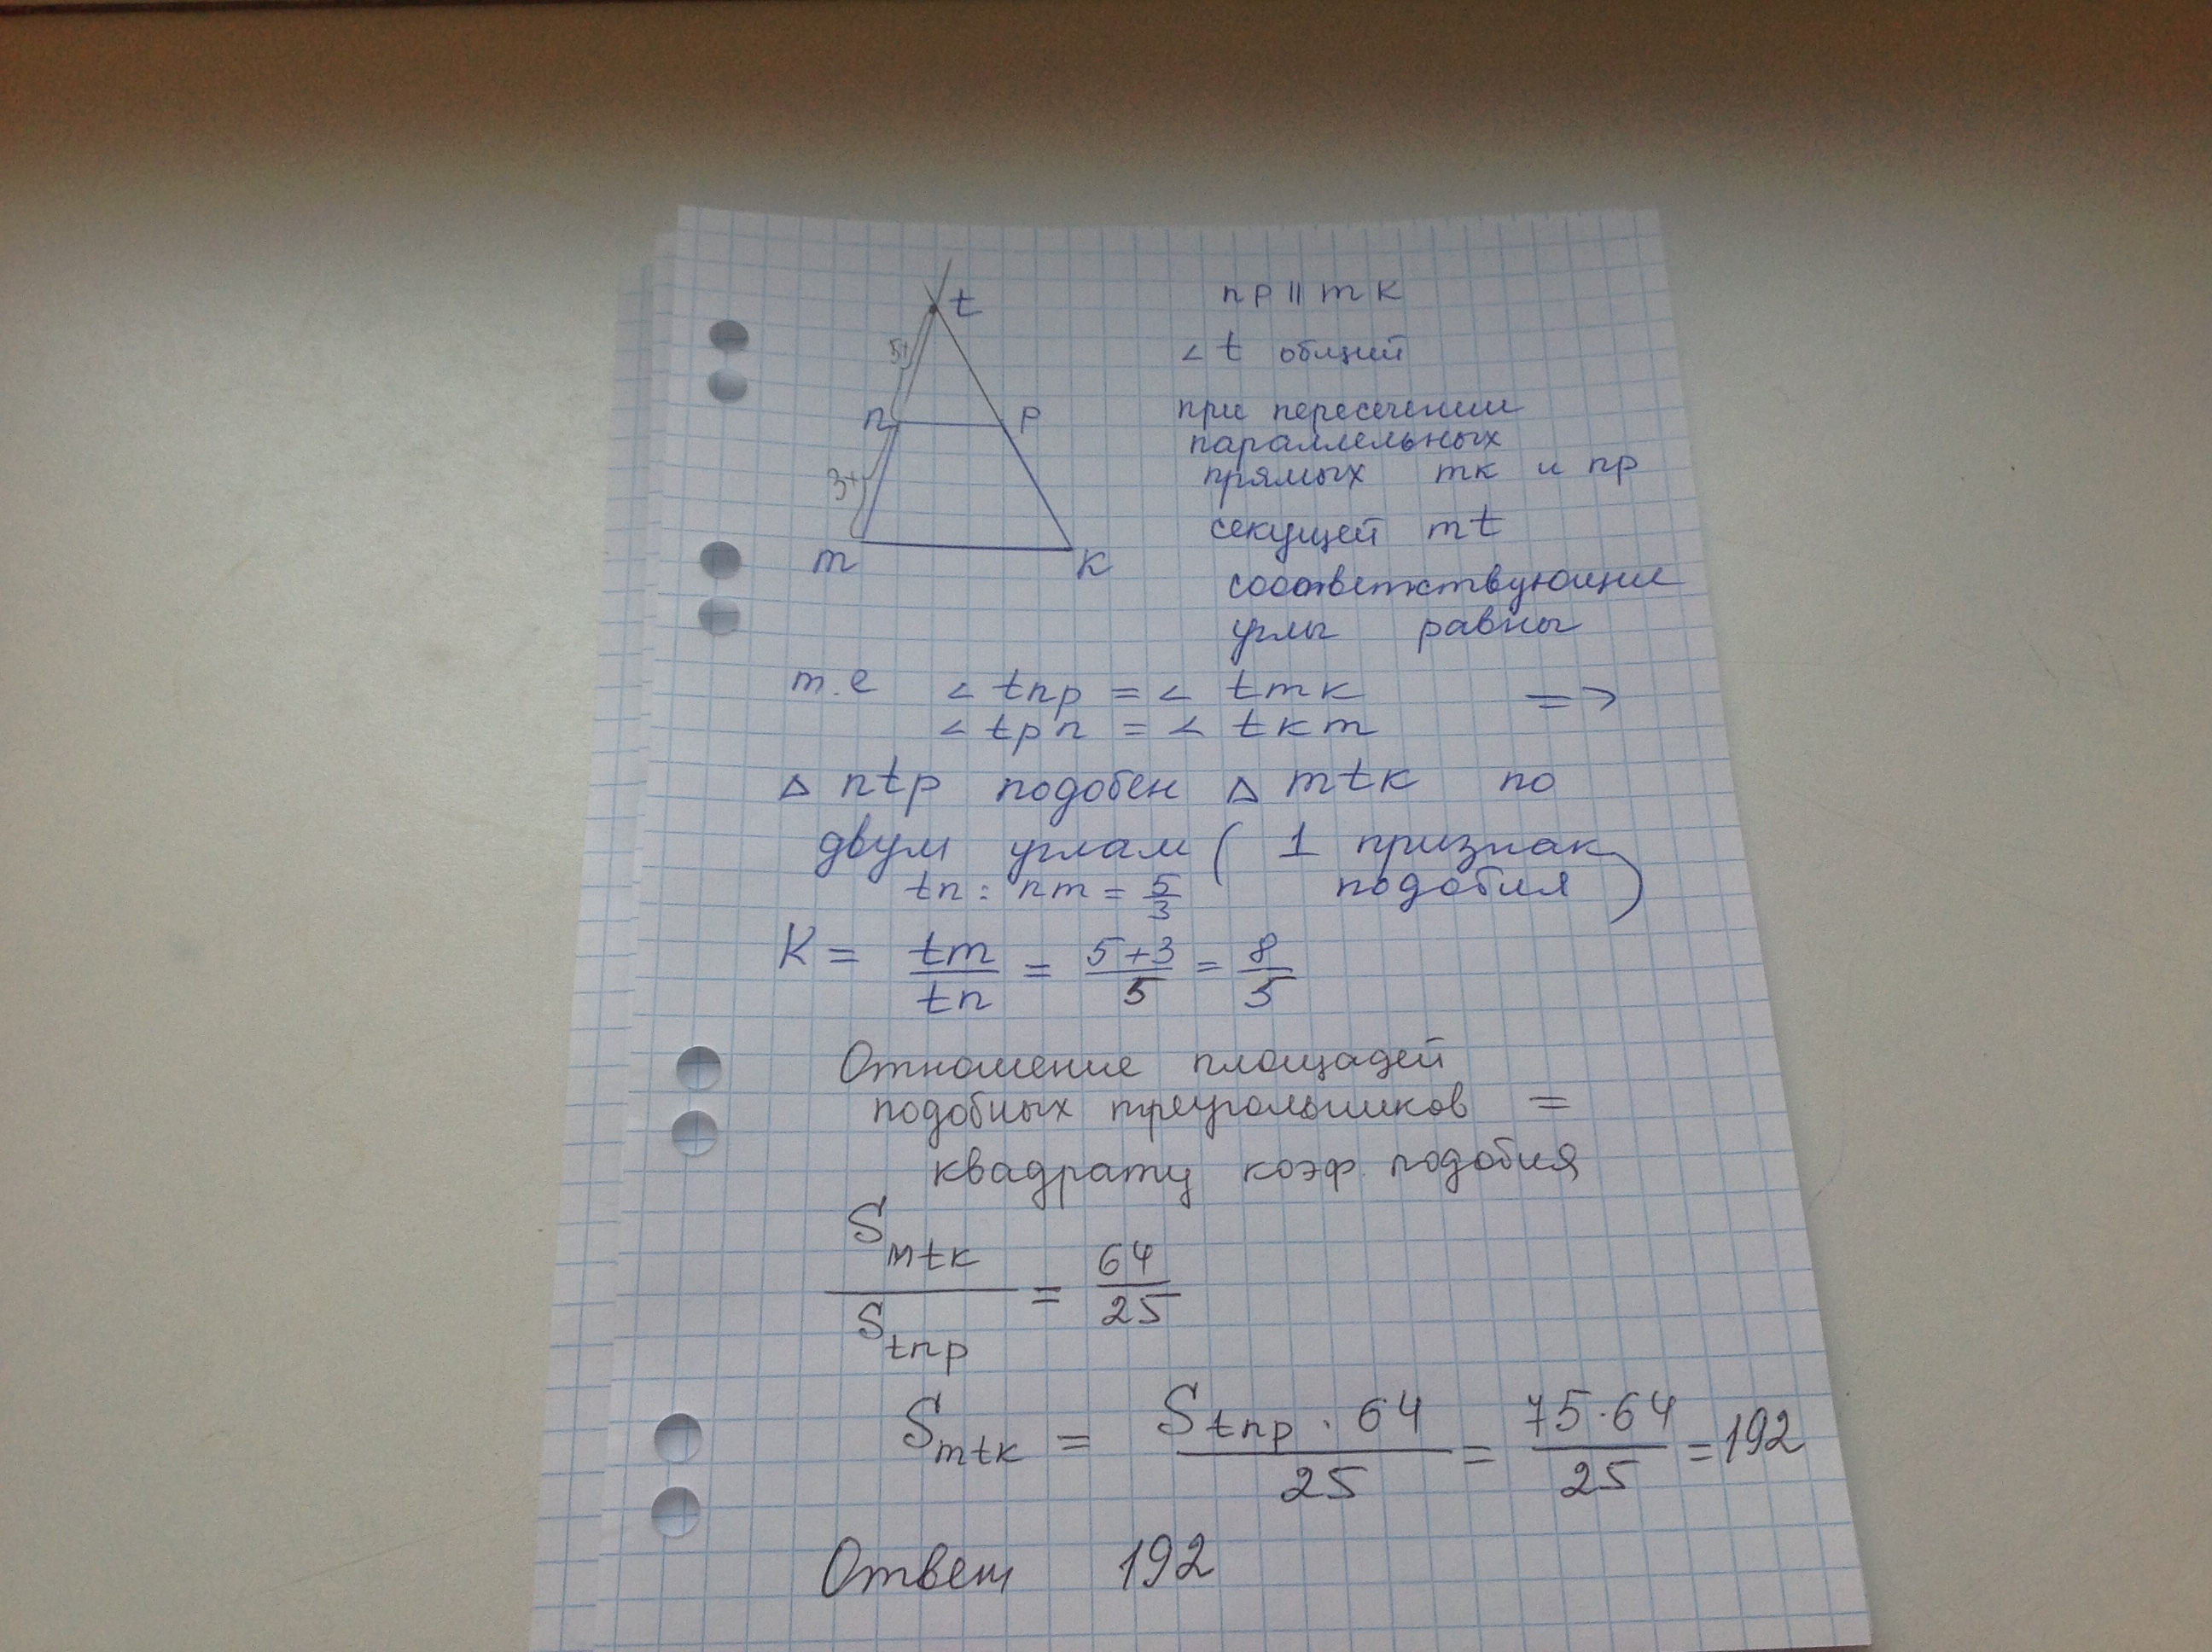 t
5+
n p
3+
m k
np || mk
∠ t общий
при пересечении
параллельных
прямых mk и np
секущей mt
соответствующие
углы равны
т.е ∠ tnp = ∠ tmk =>
∠ tpn = ∠ tkm
△ ntp подобен △ mtk по
двум углам ( 1 признак
подобия )
tn : nm = 5/3
K = tm/tn = 5+3/5 = 8/5
Отношение площадей
подобных треугольников =
квадрату коэф. подобия
S mtk / S tnp = 64/25
S mtk = S tnp · 64 / 25 = 75·64 / 25 = 192
Ответ 192